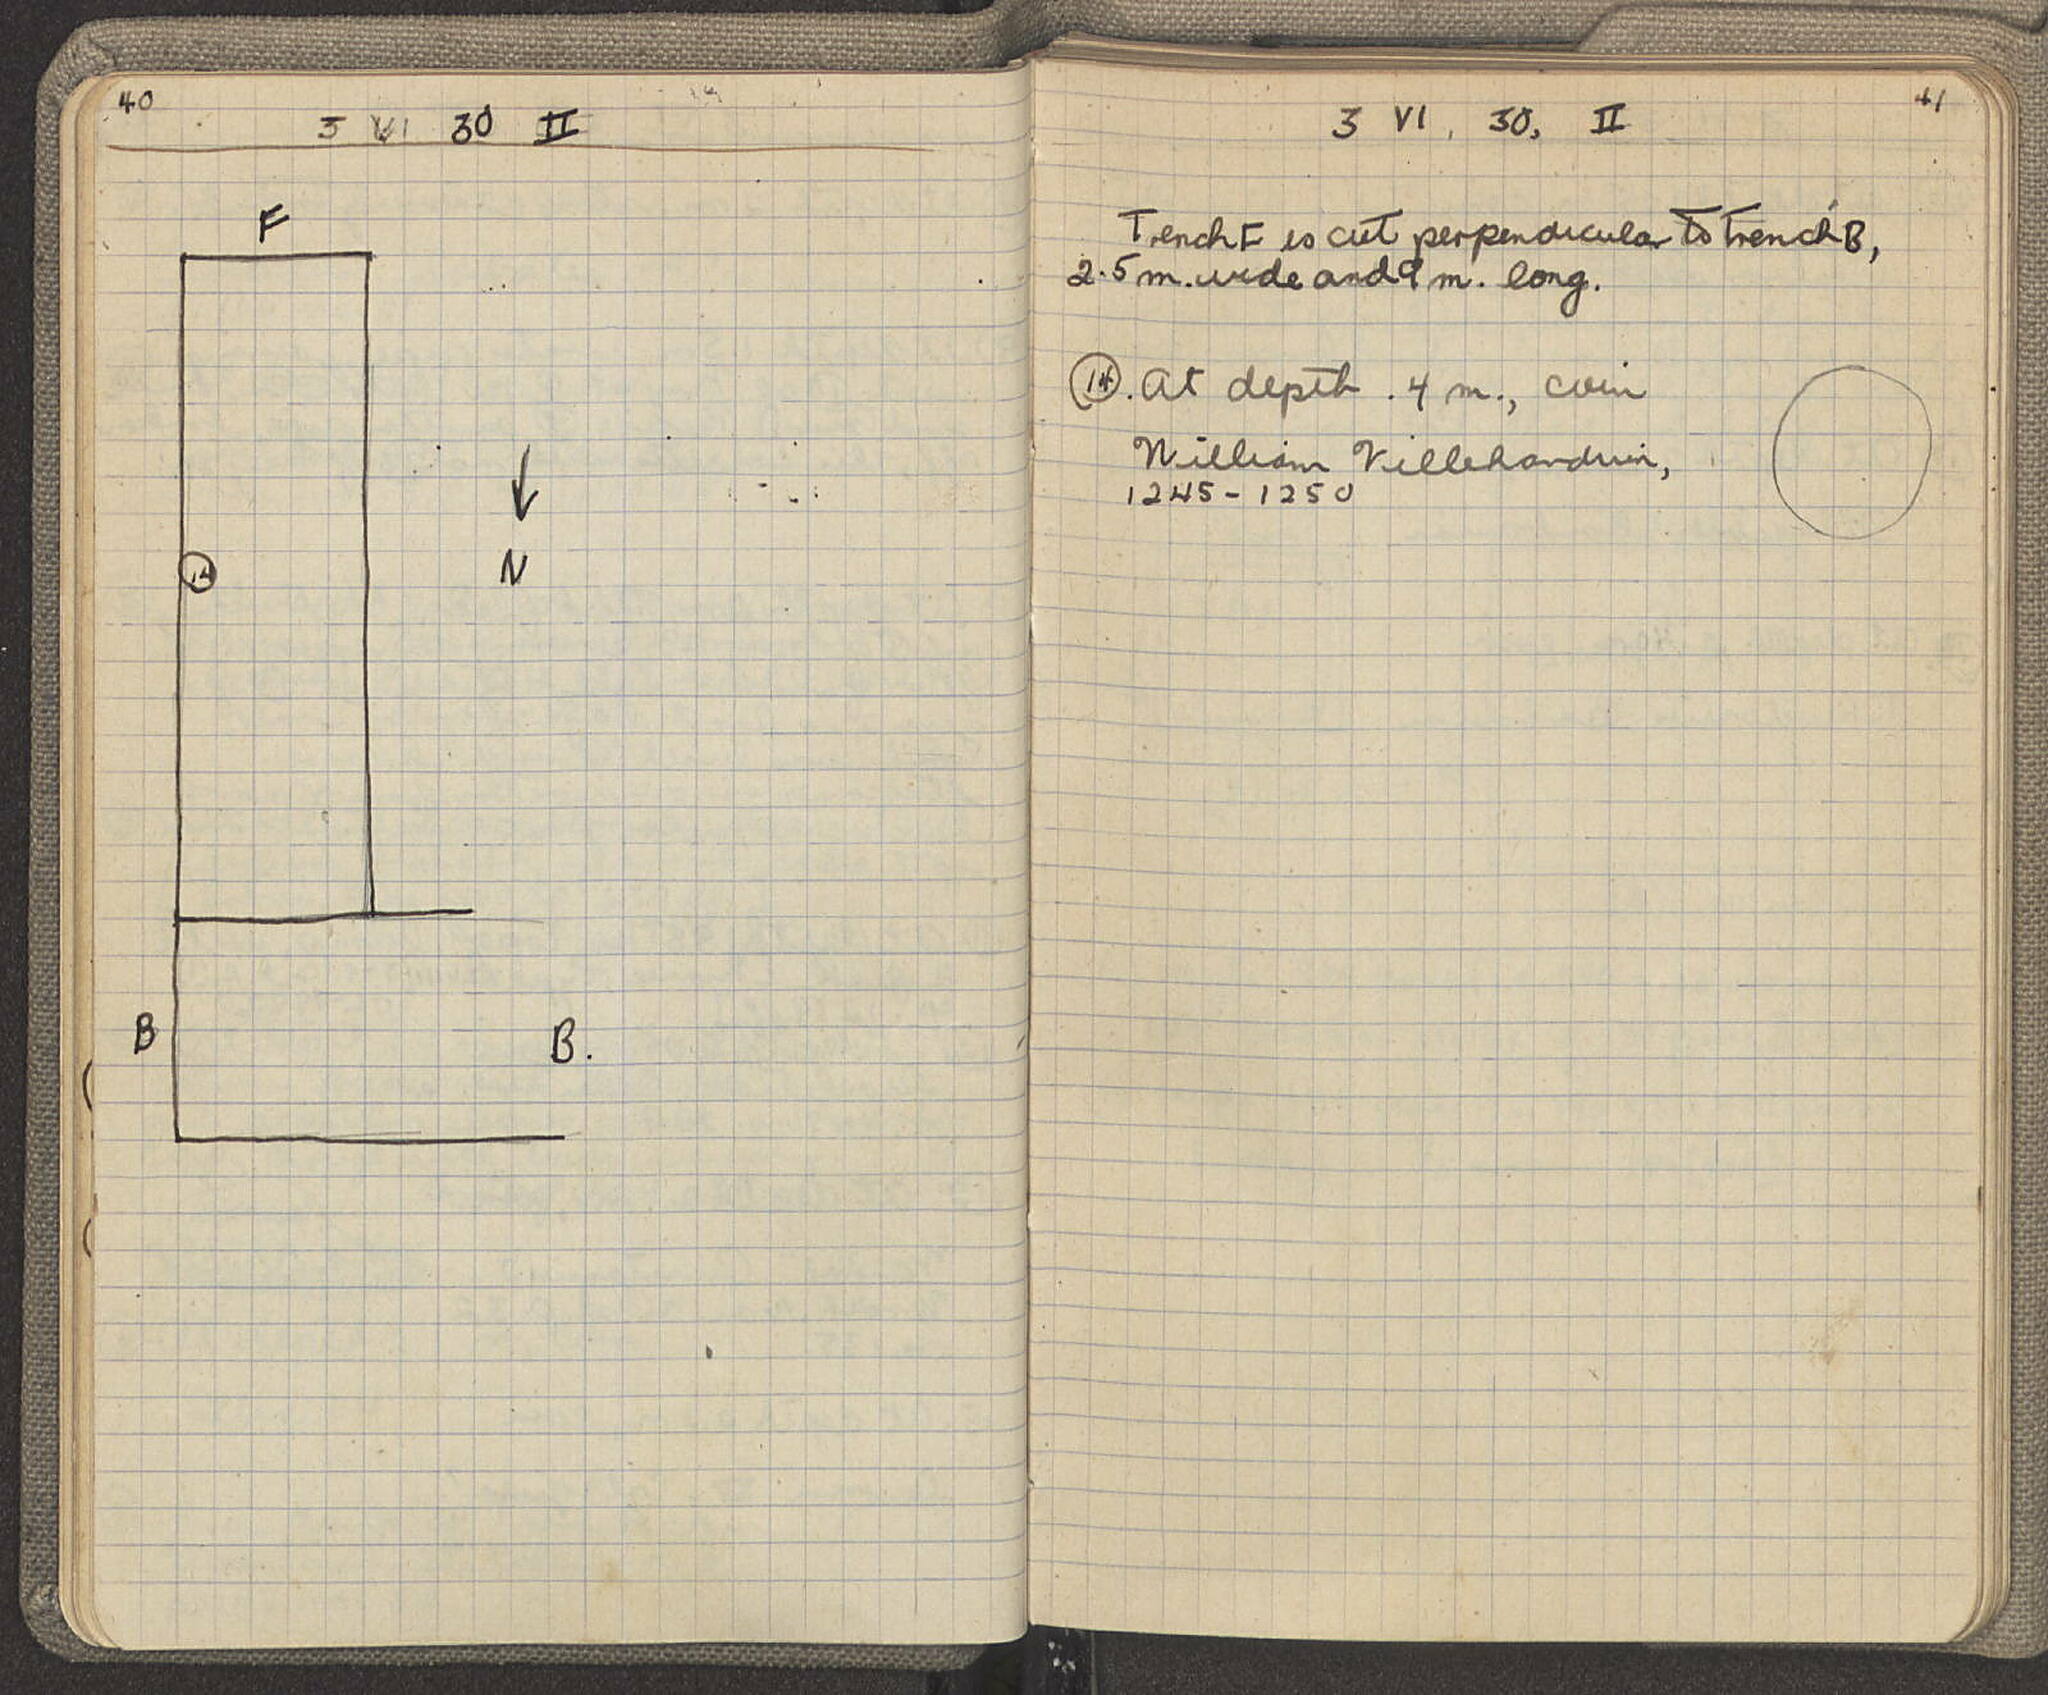 40
3 VI 30 II
F
14
N
B
B.
41
3 VI. 30, II
Trench F is cut perpendicular to Trench B,
2.5 m. wide and 9 m. long.
14. At depth .4 m., coin
William Villeharduin,
1245-1250